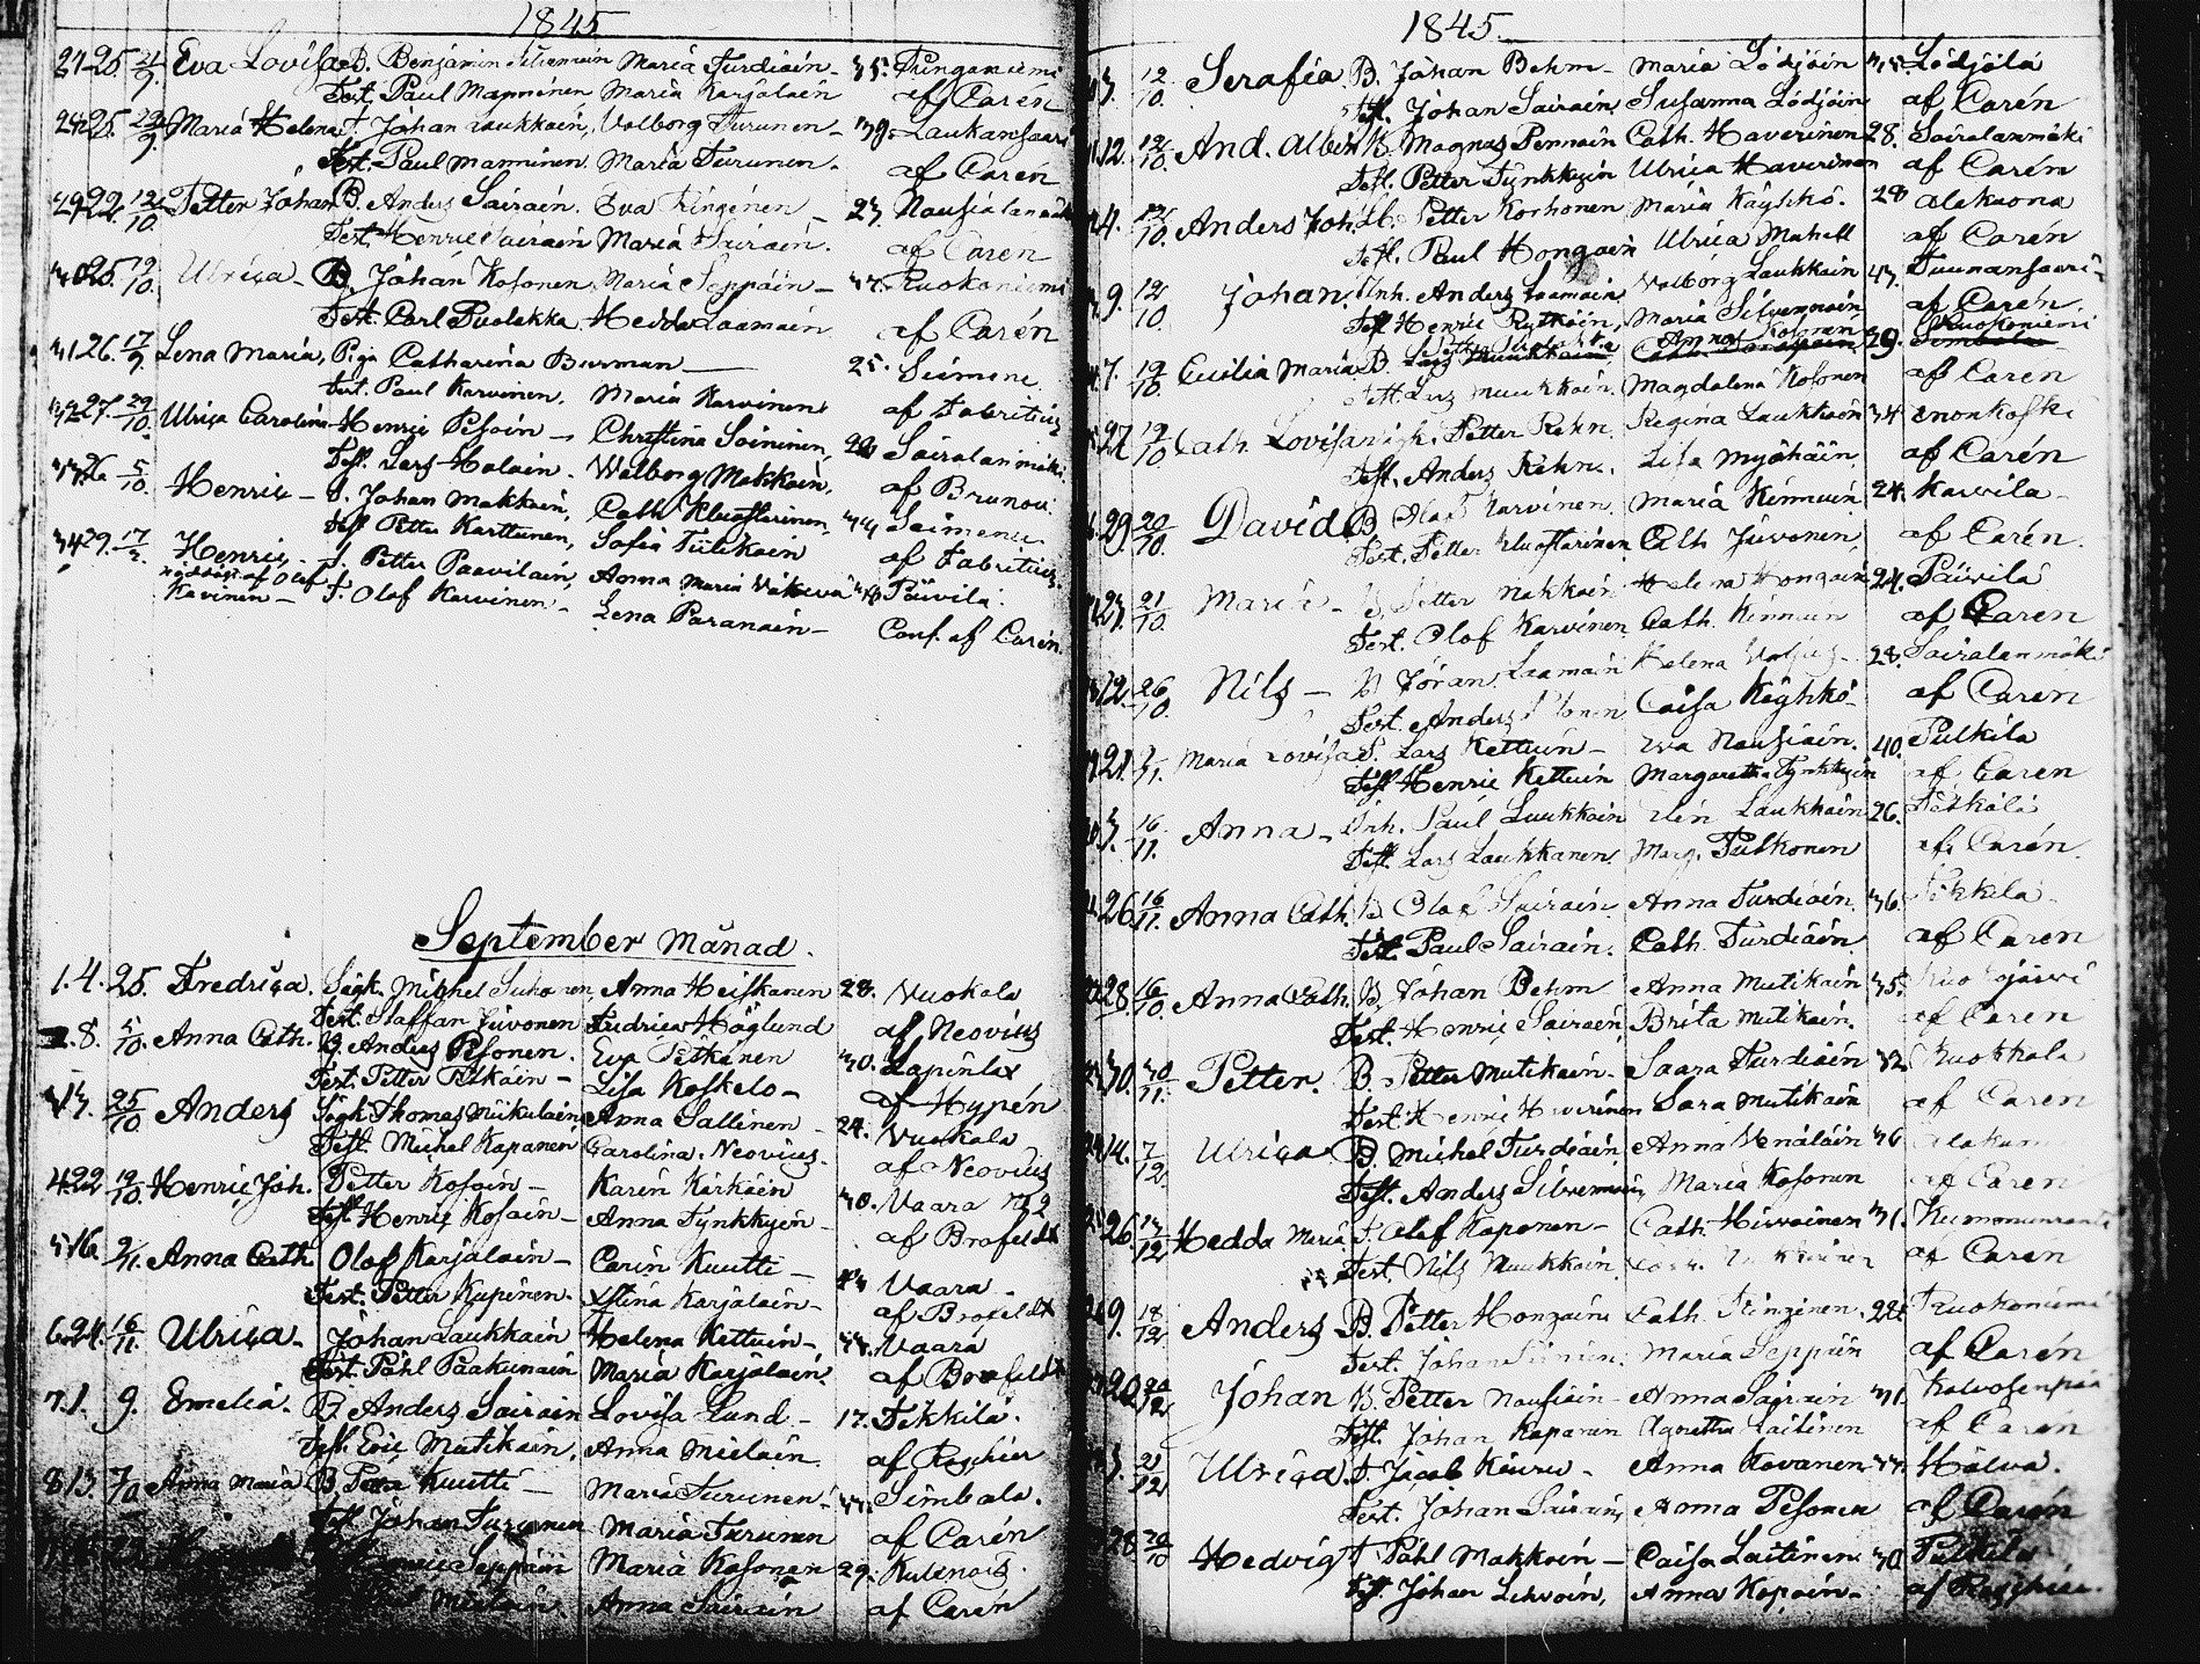 1845.
25. Eva Lovisa B. Benjamin Silvennoin Maria Turdiain 35. Pungoniemi
Test. Paul Manninen Maria Karjalain af Carén
25. 29/9. Maria Helena J. Johan Laukkain, Valborg Turunen 39. Laukansaari
Test. Paul Manninen. Maria Turunen. af Carén
29 22. 12/10. Petter Johan B. Anders Sairain. Eva Tingénen 23. Nousialanmäki
Test. Henric Sairain Maria Sairain. af Caren
30 25. 19/10. Ulrica B. Johan Kosonen, Maria Seppäin Ruokoniemi
Test. Carl Puolakka, Hedda Laamain af Carén
31 26. 17/9. Lena Maria, Piga Catharina Burman 25. Siimene
Test. Paul Karvinen. Maria Karvinen af Fabritius
32 27. 29/10. Ulrica Carolina Henric Pesoin Christina Soininen, Sairalanmäki.
Test. Lars Holain. Walborg Makkain, af Brunou.
33 26. 5/10. Henric J. Johan Makkain, Cath. Kluostarinen 44 Siimene
Test Petter Karttunen, Sofia Tiilikain af Fabritius.
34 29. 17/2. Henric J. Petter Paavilain, Anna Maria Väkevä Päivilä.
af Olof
Kavinen J. Olof Karvinen Lena Paranain Conf. af Carén.
September Månad.
1. 4. 25. Fredrica. Sågk. Michel Suhonen, Anna Heiskanen 28. Vuokala
Test. Staffan Juvonen Fredrica Höglund af Neovius
2. 8. 5/10. Anna Cath. B. Anders Pesonen. Eva Pitkänen 30. Lapinlax
Test. Petter Pitkäin Lisa Koskelo af Hypén
3. 25/10 Anders Sågk Thomas Miikulain Anna Sallinen 24. Vuokala
Test. Michel Kapanen Carolina Neovius. af Neovius
4. 22 19/10. Henric Joh. Petter Kosoin Karin Kärkäin 30. Vaara No 2
Test Henric Kosain Anna Tynkkyin af Brofeldt
5. 16. 2/11. Anna Cath Olof Karjalain Carin Kuutti Vaara
Test. Petter Kupinen. Xstina Karjalain af Brofeldt
6. 24. 16/11. Ulrica Johan Laukkain Helena Kettuin Vaara
Test. Påhl Paakunain Maria Karjalain. af Brofeldt
7. 1. 9. Emelia. B. Anders Sairain Lovisa Lund 17. Tikkilä.
Test. Eric Mutikain, Anna Mielain af Roschier
8 13. 7/10 Anna Maria B. Petter Kuutti Maria Turunen Simbala.
Test Johan Turunen Maria Turunen af Carén
Henric Seppäin Maria Kosonen 29. Kulennois.
Mielain. Anna Sairain af Carén
1845.
3. 12/10. Serafia B. Johan Behm Maria Lödjöin Lödjölä
Test. Johan Sairain. Susanna Lödjöin af Carén
12. 12/10. And. Albin B. Magnus Pennain Cath. Haverinen 28. Sairalanmäki
Test. Petter Tynkkyin Ulrica Haverinen af Carén
4. 12/10. Anders Joh. Petter Korhonen Maria Käyhkö. 28 Alakuona
Test. Paul Hongoin Ulrica Mahell af Carén
9. 12/10 Johan Inh. Anders Laamain Valborg Laukkain 43. Tuunansaari
Test Henric Rytköin, Maria Silvennoin af Carén.
Anna Kosonen Ruokoniemi
7. 19/10. Cecilia Maria B. 29. Simbala
Test. Lars Muukkain. Magdalena Kosonen af Carén
27 19/10 Cath. Lovisa Petter Rehn. Regina Laukkain 34 Enonkoski
Test. Anders Rehn. Lisa Myöhäin. af Carén
29. 20/10. David B. Olof Karvinen. Maria Kinnuin 24. Karvila
Test. Petter Kluostarinen Cath Juvonen, af Carén.
23. 21/10. Maria B. Petter Makkain Helena Hongain 24. Päivilä
Test. Olof Karvinen Cath. Kinnuin af Caren
12. 26/10. Nils B. Göran Laamain Helena 28. Sairalanmäki
Test. Anders Caisa Käyhkö af Carén
21. 2/11. Maria Lovisa J. Lars Kettuin Eva Nousiain. 40. Pulkila
Test Henric Kettuin Margaretha Tynkkyin af Caren
3. 16/11. Anna Inh. Paul Laukkain Elin Laukkain 26.
Test. Lars Laukkanen. Marg. Pulkonen af Carén.
26. 16/11. Anna Cath. B Olof Sairain. Anna Turdiain. 36. Tikkilä
Test. Paul Sairain. Cath. Turdiain. af Caren
28. 16/10. Anna Cath. B. Johan Behm Anna Mutikain 35.
Test. Henric Sairain, Brita Mutikain. af Caren
30. 30/11. Petter. B. Petter Mutikain Saara Turdiain 32 Ruokkala
Test. Henric Havirinen Sara Mutikain af Caren
14. 7/12. Ulrica B. Michel Turdiain, Anna Venäläin 36
Test. Anders Silvennoin, Maria Kosonen af Caren
26. 14/12 Hedda Maria J. Olof Kaponen Cath. Hirvoinen 31.
Test. Nils Muukkain. af Carén
9. 18/12 Anders B. Petter Hongain Cath. Tingénen. 28. Ruokoniemi
Test. Johan Maria Seppäin af Carén
20 20/12 Johan B. Petter Nousiain Anna Sairain 31. Kalvosenpää
Test. Johan Kapanen Agnetha Laitinen af Carén
3. 21/12 Ulrica J. Jacob Kiuru Anna Kovanen Hälvä.
Test. Johan Sairain, Anna Pesonen af Carén
28. 20/10 Hedvig J Påhl Makkoin Caisa Laitinen 30. Pulkila
Test. Johan Lehvoin, Anna Kopoin af Roschier.